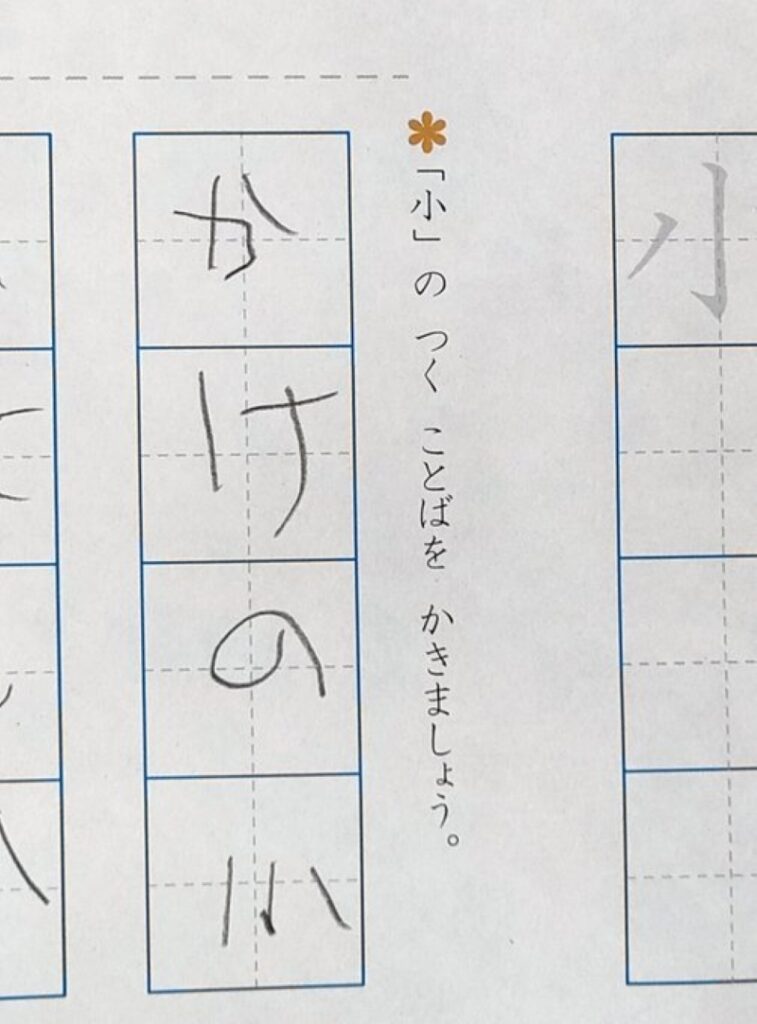 小
「小」の つく ことばを かきましょう。
かけの小